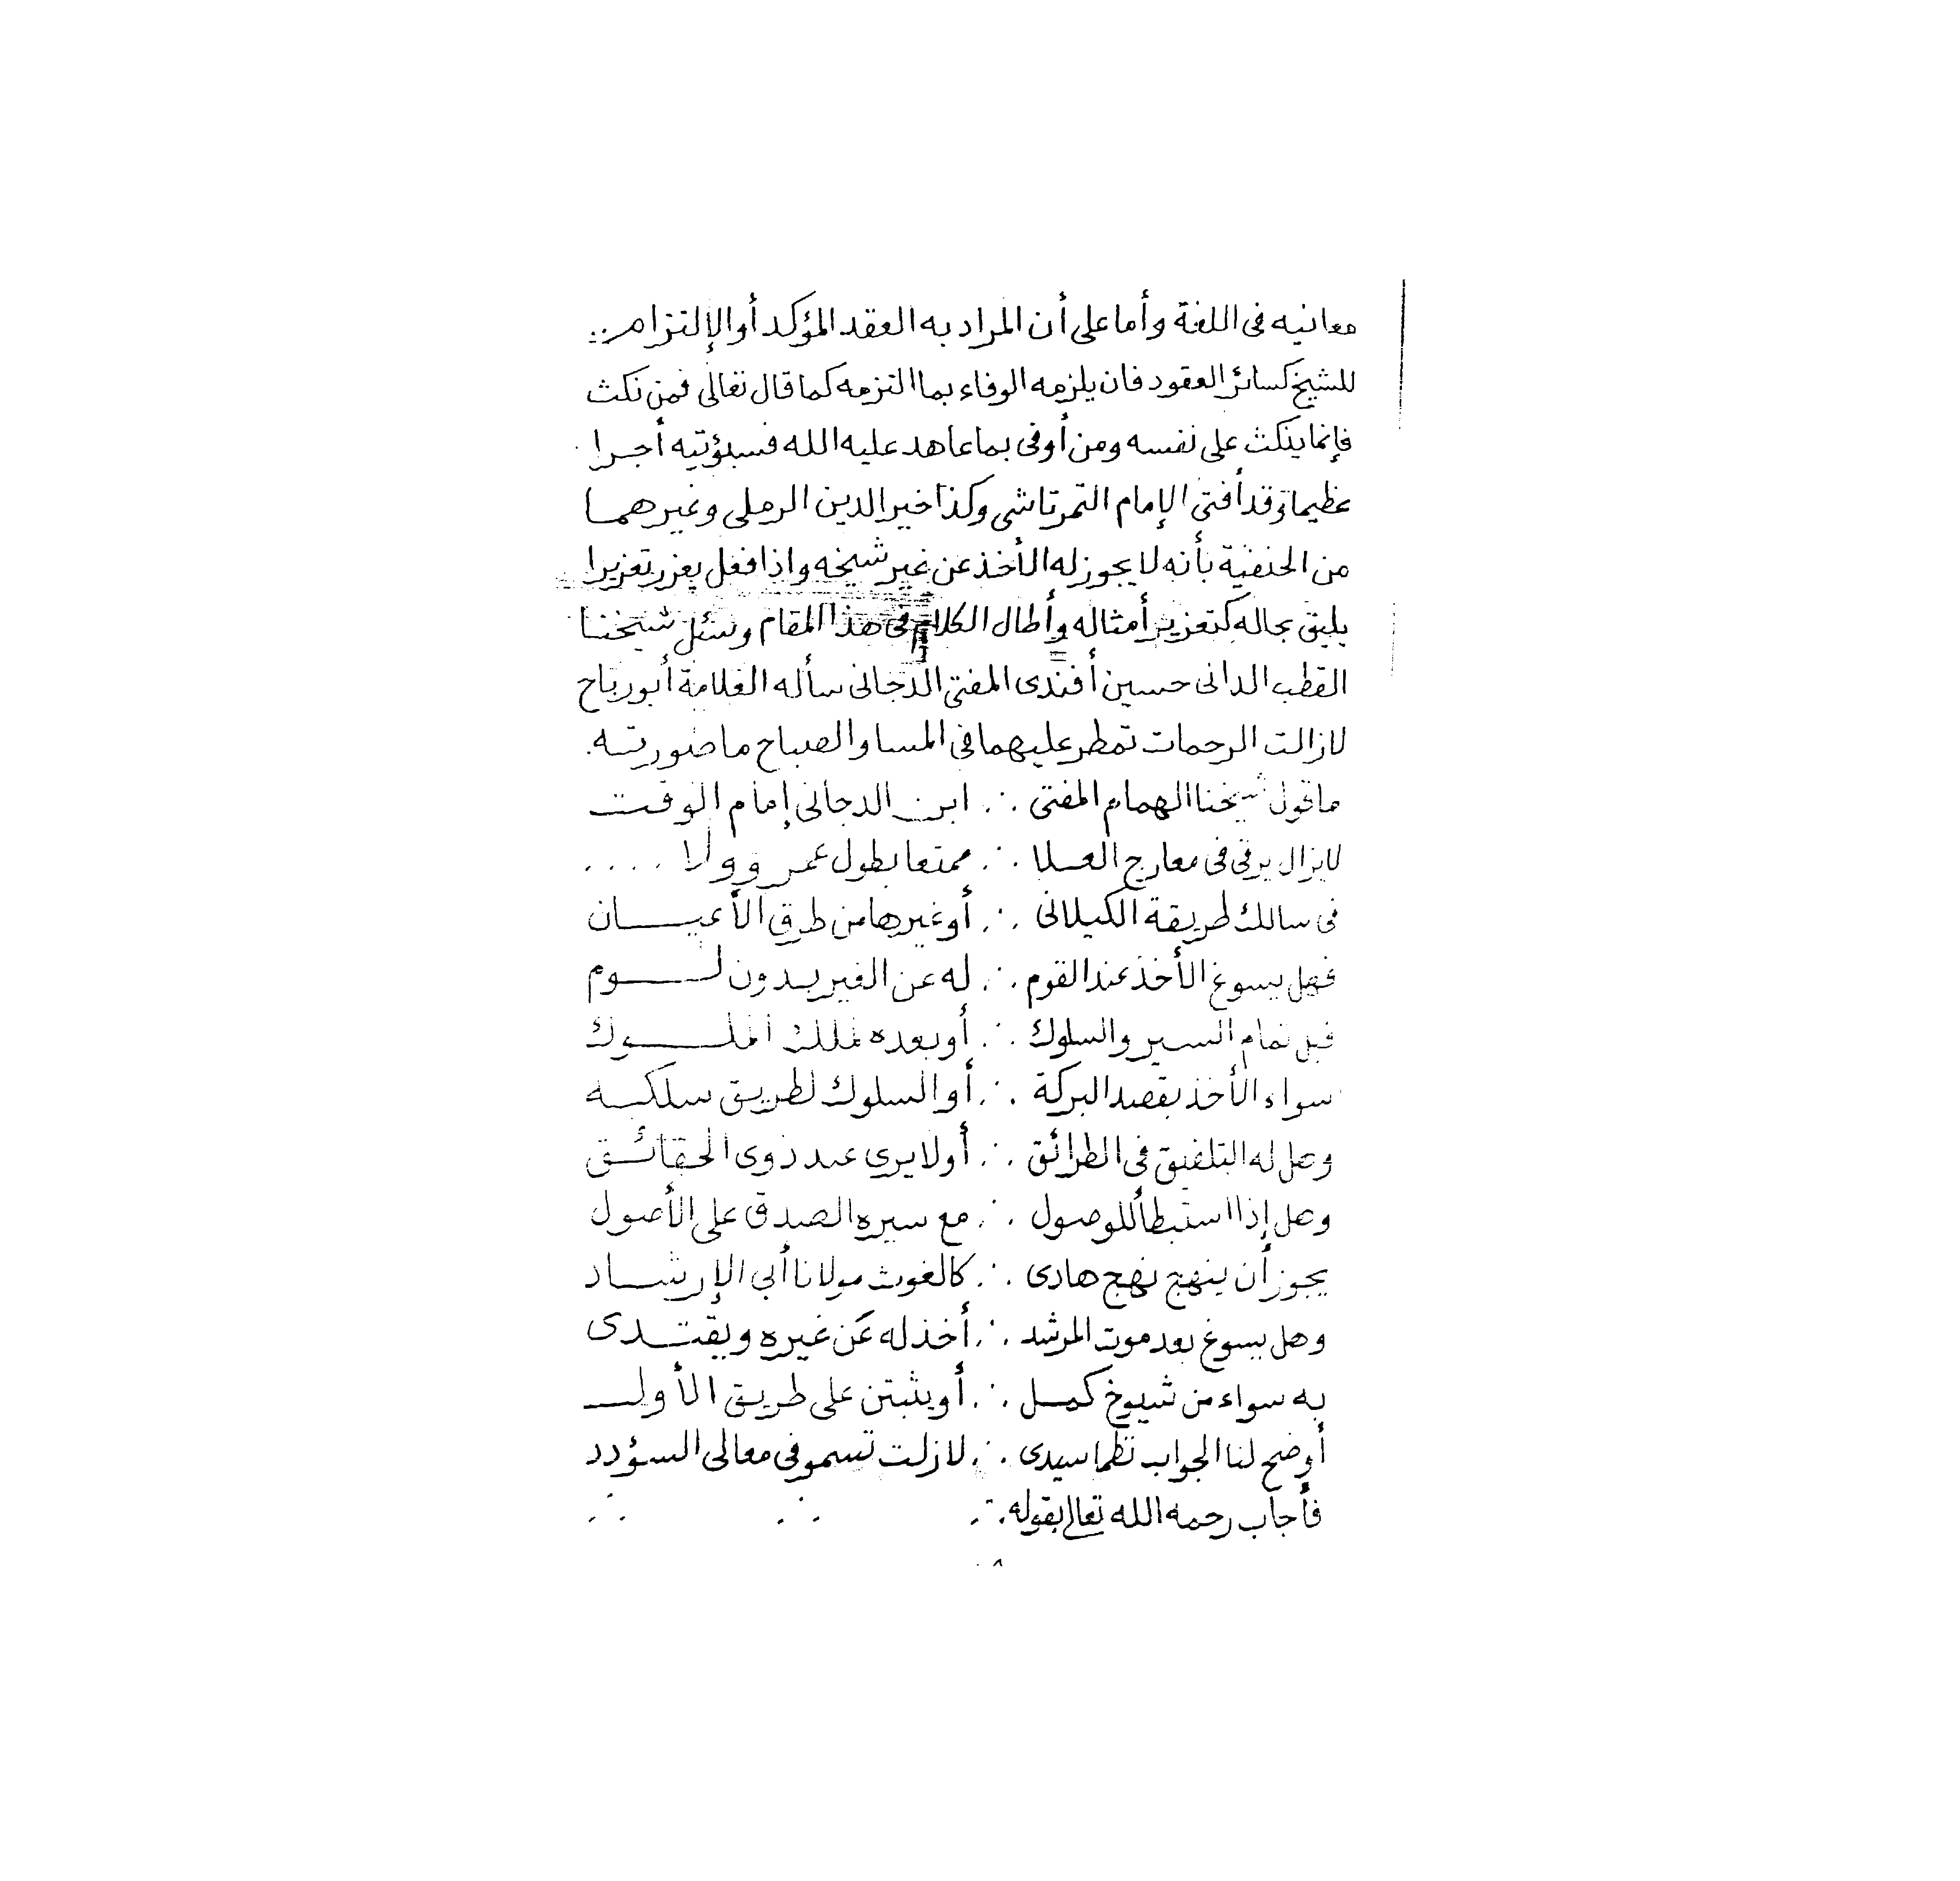 معانيه فى اللغة وأما على أن المراد به العقد المؤكد أو الإلتزام ..
للشيخ كسائر العقود فان يلزمه الوفاء بما التزمه كما قال تعالى فمن نكث
فإنما ينكث على نفسه ومن أوفى بما عاهد عليه الله فسيؤتيه أجرا
عظيما وقد أفتى الإمام التمرتاشى وكذا خير الدين الرملى وغيرهما
من الحنفية بأنه لا يجوز له الأخذ عن غير شيخه واذا فعل يعزر تعزيرا
يليق بحاله كتعزير أمثاله وأطال الكلام فى هذا المقام وسئل شيخنا
القطب الدانى حسين أفندى المفتى الدجانى سأله العلامة أبو رباح
لازالت الرحمات تمطر عليهما فى المسا والصباح ما صورته.
ما قول شيخنا الهمام المفتى ∴ ابن الدجانى إمام الوقت
لا يزال يرقى فى معارج العلا ∴ ممتعا بطول عمر وولا ....
فى سالك طريقة الكيلانى ∴ أو غيرها من طرق الأعيـــان
فهل يسوغ الأخذ عند القوم ∴ له عن الغير بدون لـــوم
قبل تمام السير والسلوك ∴ أو بعده لملك الملـــوك
سواء الأخذ بقصد البركة ∴ أو السلوك لطريق سلكـه
وهل له التلفيق فى الطرائق ∴ أو لا يرى عند ذوى الحقائـق
وهل إذا استبطأ للوصول ∴ مع سيره الصدق على الأصول
يجوز أن ينهج نهج هادى ∴ كالغوث مولانا أبى الإرشـاد
وهل يسوغ بعد موت المرشد ∴ أخذ له عن غيره ويقتـدى
به سواء من شيوخ كمـل ∴ أو يثبتن على طريق الأولـــ
أوضح لنا الجواب نظما سيدى ∴ لازلت تسمو فى معالى السؤدد
فأجاب رحمه الله تعالى بقوله ∴ ∴ ∴
٨